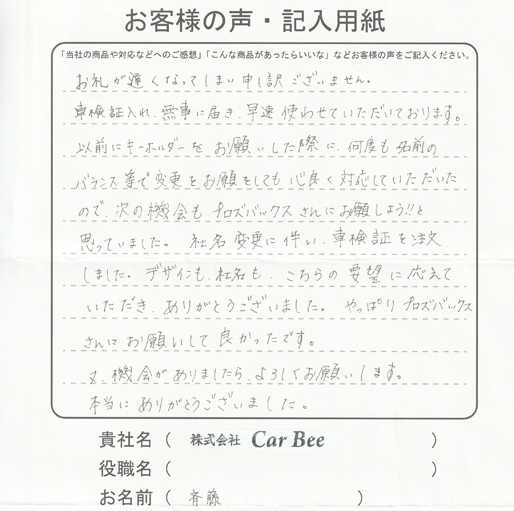 お客様の声・記入用紙
「当社の商品や対応などへのご感想」「こんな商品があったらいいな」などお客様の声をご記入ください。
お礼が遅くなってしまい申し訳ございません。
車検証入れ、無事に届き、早速使わせていただいております。
以前にキーホルダーをお願いした際に、何度も名前の
バランス等で変更をお願をしても心良く対応していただいた
ので、次の機会もプロズバックスさんにお願しよう!!と
思っていました。社名変更に伴い、車検証を注文
しました。デザインも、社名も、こちらの要望に応えて
いただき、ありがとうございました。やっぱりプロズバックス
さんにお願いして良かったです。
又、機会がありましたら、よろしくお願いします。
本当にありがとうございました。
貴社名(株式会社 Car Bee)
役職名()
お名前(斉藤)